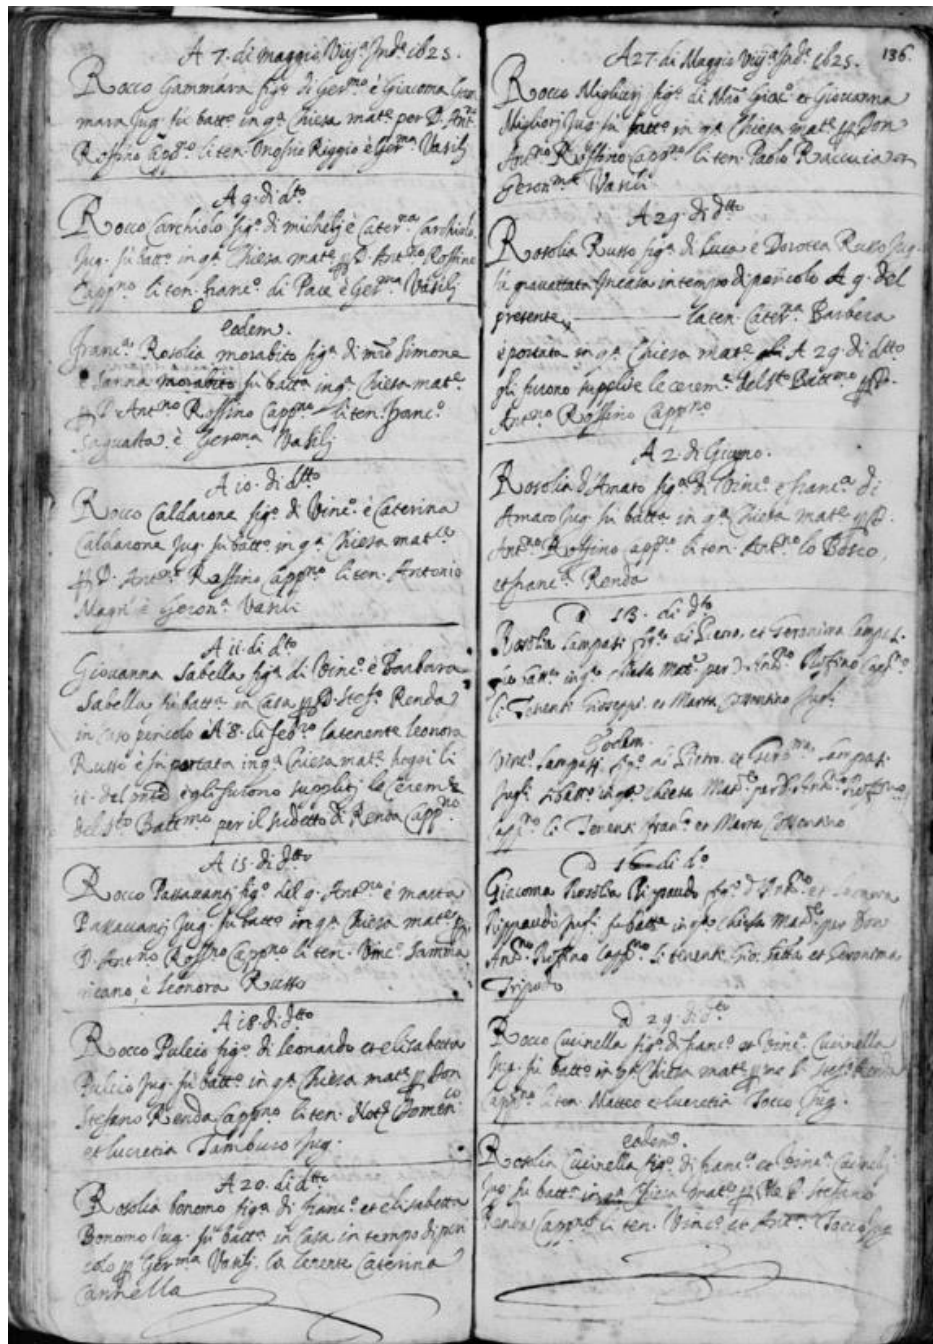 A 7. di maggio Viijᵃ Indᵉ 1625.
Rocco Gammára figᵒ di Gerᵐᵒ è Giacoma Gam
mara Jug. fù battᵒ in qᵃ Chiesa matᵉ per D. Antⁿᵒ
Rossino Cappⁿᵒ li ten. Onofrio Riggio è Gerᵐᵃ Vasilj
A 9. di dᵗᵒ
Rocco Carchiolo figᵒ di michelj è Caterⁿᵃ Carchiolo
Jug. fù battᵒ in qᵃ Chiesa matᵉ p D. Antⁿᵒ Rossino
Cappⁿᵒ li ten. francᵒ di Pace è Gerᵐᵃ Vasilj
eodem.
francᵃ Rosolia morabito figᵃ di mʳᵒ Simone
è Janna morabito fù battᵃ in qᵃ Chiesa matᵉ
p D. Antⁿᵒ Rossino Cappⁿᵒ li ten. francᵒ
è Gerᵒⁿᵃ Vasilj
A 10. di dᵗᵗᵒ
Rocco Caldarone figᵒ di Vincᵒ è Caterina
Caldarone Jug. fù battᵒ in qᵃ Chiesa matᶜᵉ
p D. Antⁿᵒ Rossino Cappⁿᵒ li ten. Antonio
Magrì è Geronᵃ Vasili
A 11. di dᵗᵒ
Giovanna Sabella figᵃ di Vincᵒ è Barbara
Sabella fù battᵃ in Casa p D. Stefᵒ Renda
in caso pericolo A 8. di febᵒ la tenente leonora
Russo è fù portata in qᵃ Chiesa matᵉ hogoi li
11. del pntᵉ è gli furono suppliti le Ceremᵉ
del sᵗᵒ Battᵐᵒ per il sudetto di Renda Cappⁿᵒ
A 15. di dᵗᵗᵒ
Rocco Passavantj figᵒ del q. Antⁿᵒ è marta
Passavantj Jug. fù battᵒ in qᵃ Chiesa matᵉ p
D. Antⁿᵒ Rossino Cappⁿᵒ li ten. Vincᵒ Samma
ricano, è leonora Russo
A 18. di dᵗᵗᵒ
Rocco Puleio figᵒ di leonardo et elisabetta
Puleio Jug. fù battᵒ in qᵃ Chiesa matᵉ p Don
Stefano Renda Cappⁿᵒ li ten. Notᵒ Domenᶜᵒ
et lucretia Tamburo Jug.
A 20. di dᵗᵗᵒ
Rosolia bonomo figᵃ di francᵒ et elisabetta
Bonomo Jug. fù battᵃ in Casa in tempo di peri
colo p Gerᵐᵃ Vasilj. la tenente Caterina
Cannella
136.
A 27. di Maggio Viijᵃ Indᵉ 1625.
Rocco Migliorj figᵒ di Mʳᵒ Giacᵒ et Giovanna
Migliorj Jug. fù battᵒ in qᵃ Chiesa matᵉ p Don
Antⁿᵒ Rossino Cappⁿᵒ li ten. Paolo Raccuia et
Geronᵐᵃ Vasili
A 29. di dᵗᵗᵒ
Rosolia Russo figᵃ di luca è Dorotea Russo Jug.
fù gravattata in casa in tempo di pericolo A 9. del
presente, la ten. Caterⁿᵃ Barbera
è portata in qᵃ Chiesa matᵉ A 29. di dᵗᵗᵒ
gli furono supplite le ceremᵉ del sᵗᵒ Battᵐᵒ p D.
Antⁿᵒ Rossino Cappⁿᵒ
A 2. di Giugno.
Rosolia d'Amato figᵃ di Vincᵒ e francᵃ di
Amato Jug. fù battᵃ in qᵃ Chiesa matᵉ p D.
Antⁿᵒ Rossino Cappⁿᵒ li ten. Antⁿᵒ lo Bosco,
et francᵃ Renda
A 13. di dᵗᵒ
Rosolia Campasi figᵃ di Pietro, et Geronima Campasi.
fù battᵃ in qᵃ chiesa Matᵉ per D. Antⁿᵒ Rossino Cappⁿᵒ
li Tenenti Gioseppi et Marta Jugˡⁱ
Eodem.
Vincᵒ Campasi figᵒ di Pietro et Gerᵒⁿᵐᵃ Campasi.
Jugˡⁱ fù battᵒ in qᵃ chiesa Matᶜᵉ per D. Antⁿᵒ Rossino
Cappⁿᵒ li Tenenti francᵒ et Marta
A di dᵒ
Giacoma Rosolia Rippaudo figᵃ d'Antⁿᵒ et leonora
Rippaudo Jugˡⁱ fù battᵃ in qᵃ chiesa Matᶜᵉ per Don
Antⁿᵒ Rossino Cappⁿᵒ li tenenti Gio: Batta et Geronima
Tripodo
A 29. di dᵗᵒ
Rocco Cucinella figᵒ di francᵒ et Vincᵃ Cucinella
Jug. fù battᵒ in qᵃ Chiesa matᵉ p me D. Stefᵒ Renda
Cappⁿᵒ li ten. Matteo et lucretia Tocco Jug.
eodem.
Rosolia Cucinella figᵃ di francᵒ et Vincᵃ Cucinellj
Jug. fù battᵃ in qᵃ Chiesa matᵉ p me D. Stefano
Renda Cappⁿᵒ li ten. Vincᵒ et Antⁿᵃ Tocco Jug